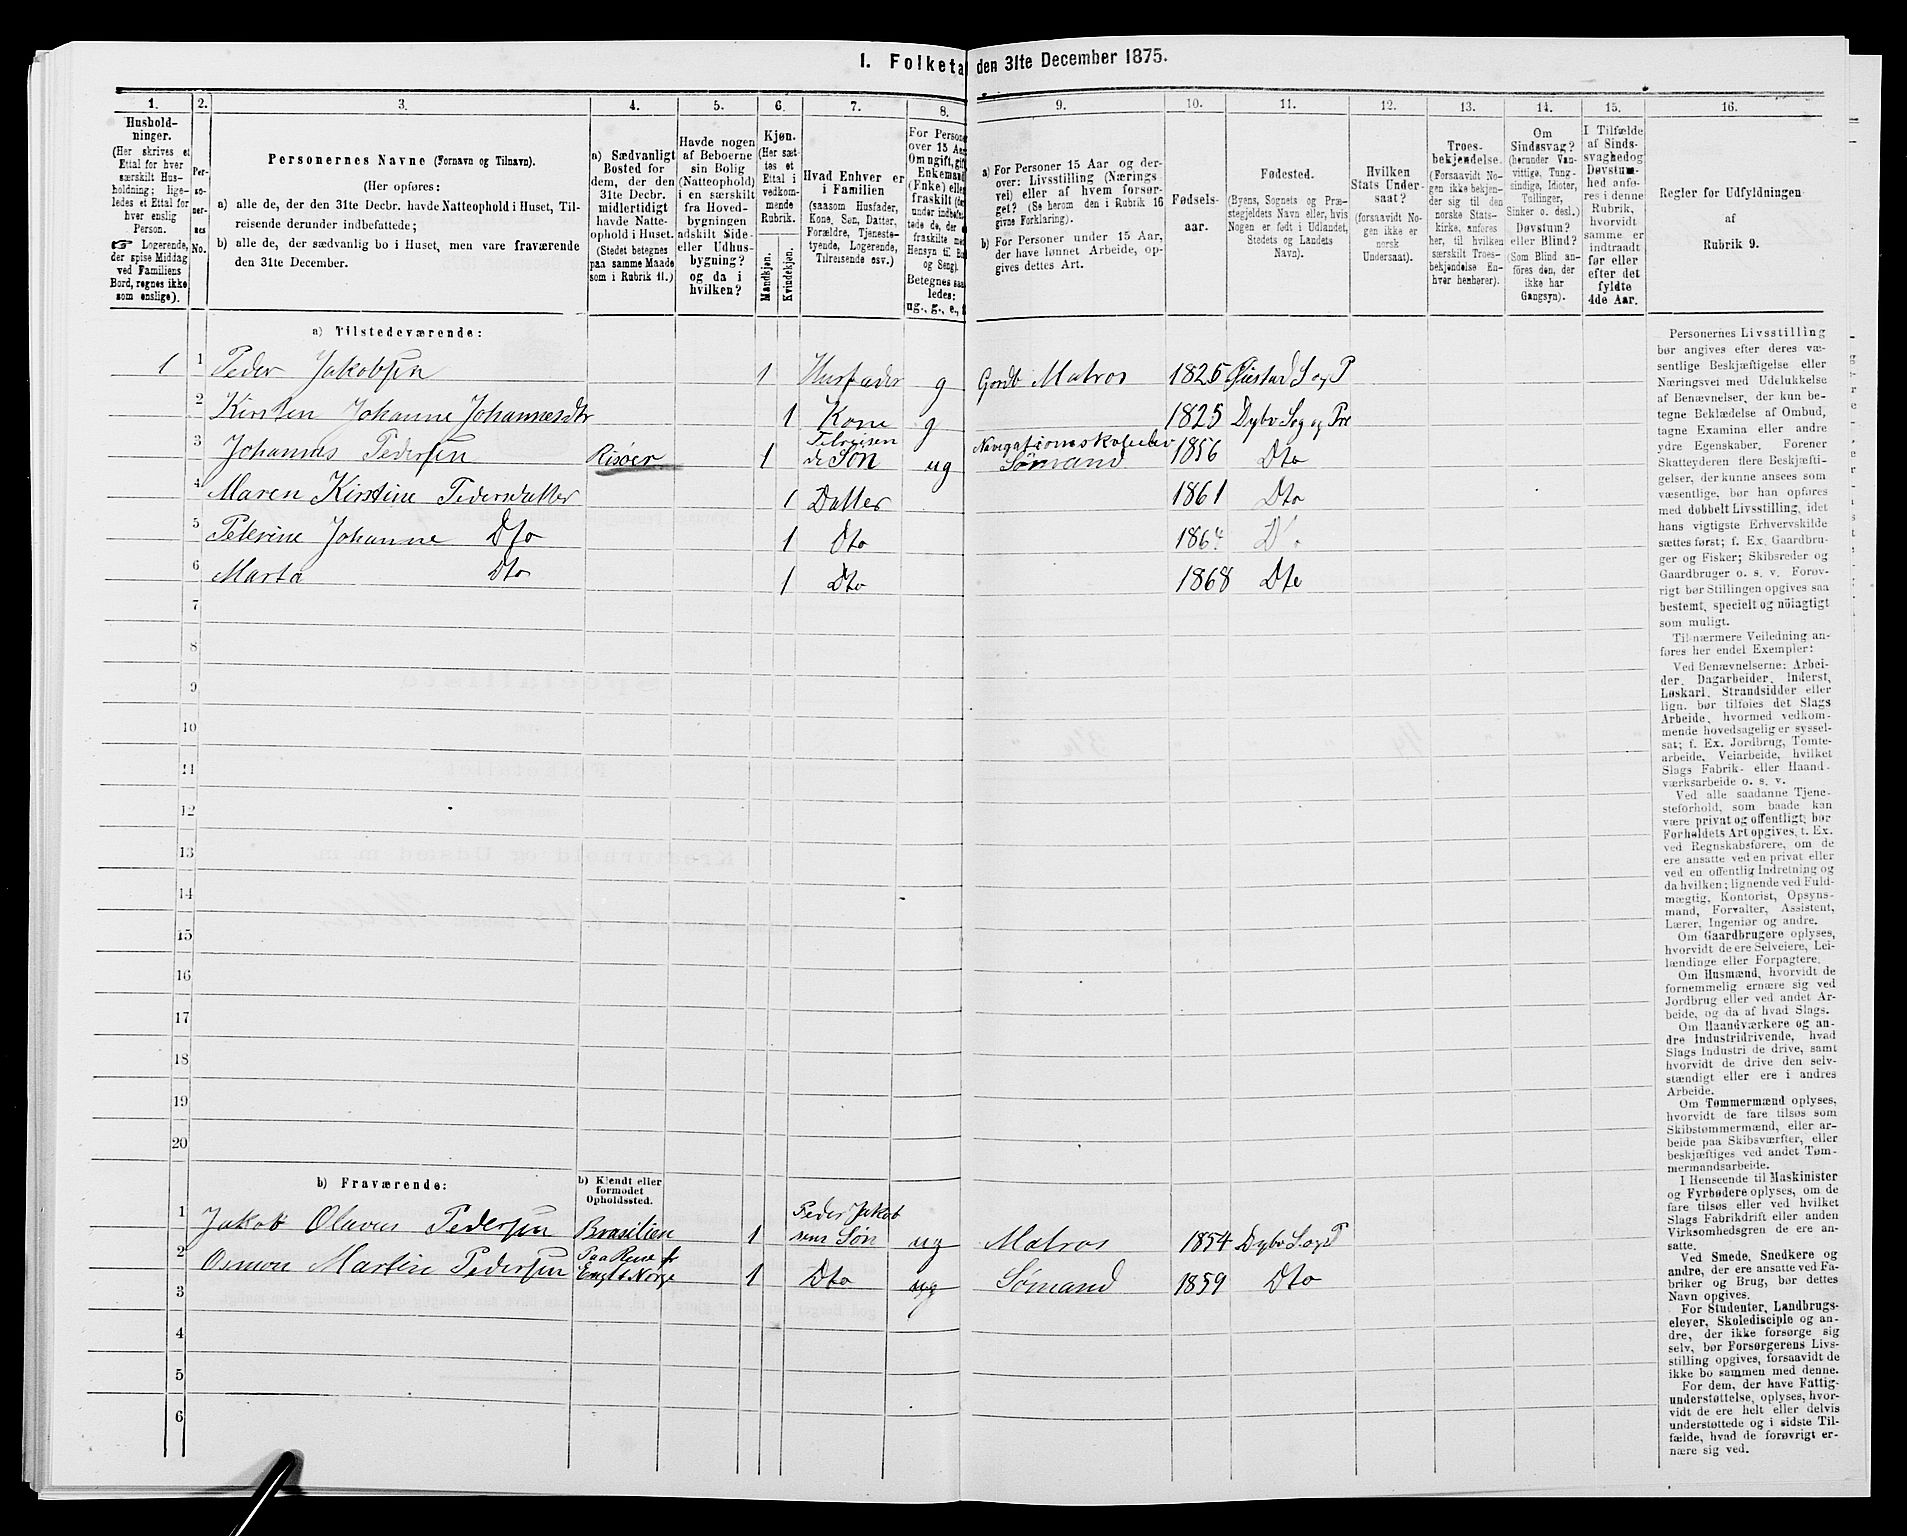 1. Folketal den 31te December 1875.
1. 2. 3. 4. 5. 6. 7. 8. 9. 10. 11. 12. 13. 14. 15. 16.
Hushold-
ninger.
(Her skrives et
Ettal for hver
særskilt Hus-
holdning; lige-
ledes et Ettal for
hver enslig
Person.
☞ Logerende,
der spise Middag
ved Familiens
Bord, regnes ikke
som enslige).
Per-
so-
ner-
nes
No.
Personernes Navne (Fornavn og Tilnavn).
(Her opføres:
a) alle de, der den 31te Decbr. havde Natteophold i Huset, Til-
reisende derunder indbefattede;
b) alle de, der sædvanlig bo i Huset, men vare fraværende
den 31te December.
a) Sædvanligt
Bosted for
dem, der den
31te Decbr.
midlertidigt
havde Natte-
ophold i Huset.
(Stedet betegnes
paa samme Maade
som i Rubrik 11.)
Havde nogen
af Beboerne
sin Bolig
(Natteophold)
i en særskilt
fra Hoved-
bygningen
adskilt Side-
eller Udhus-
bygning?
og da i
hvilken?
Kjøn.
(Her sæt-
tes et
Ettal i
vedkom-
mende
Rubrik.
Mandkjøn.
Kvindekjøn.
Hvad Enhver er
i Familien
(saasom Husfader,
Kone, Søn, Datter,
Forældre, Tjeneste-
tyende, Logerende,
Tilreisende osv.)
For Persone
over 15 Aar
Om ugift, gift
Enkemand
(Enke) elle
fraskilt
Betegnes saa
ledes:
ug., g., e., f
a) For Personer 15 Aar og der-
over: Livsstilling (Nærings-
vei) eller af hvem forsør-
get? (Se herom den i Rubrik 16
givne Forklaring).
b) For Personer under 15 Aar,
der have lønnet Arbeide, op-
gives dettes Art.
Fødsels-
aar.
Fødested.
(Byens, Sognets og Præ-
stegjeldets Navn eller, hvis
Nogen er født i Udlandet,
Stedets og Landets
Navn).
Hvilken
Stats Under-
saat?
(forsaavidt No-
gen ikke er
norsk
Undersaat).
Troes-
bekjendelse.
(Forsaavidt No-
gen ikke bekjen-
der sig til den
norske Stats-
kirke, anføres
her, til hvilken
særskilt Troes-
bekjendelse En-
hver henhører).
Om
Sindssvag?
(herunder Van-
vittige, Tung-
sindige, Idioter,
Tullinger,
Sinker o. desl.)
Døvstum?
eller Blind?
(Som Blind an-
føres den, der
ikke har
Gangsyn).
I Tilfælde
af Sinds-
svaghed og
Døvstum-
hed anfø-
res i denne
Rubrik,
hvorvidt
samme er
indtraadt
før eller
efter det
fyldte
4de Aar.
Regler for Udfyldningen
af
Rubrik 9.
a) Tilstedeværende:
1 1 Peder Jakobsen 1 Husfader g Gordb Matros 1825 Øiestad S og P
2 Kirsten Johanne Johannesdtr 1 Kone g 1825 Dybv Sog og Pre
3 Johannes Pedersen Risøer 1 Tilreisen de Søn ug Navigationsskoleelev Sømand 1856 Dto
4 Maren Kirstine Pedersdatter 1 Datter 1861 Dto
5 Peterine Johanne Dto 1 Dto 1864 D".
6 Marta Dto 1 Dto 1868 Dto
7
8
9
10
11
12
13
14
15
16
17
18
19
20
b) Fraværende: b) Kjendt eller
formodet
Opholdssted.
1 Jakob Olavus Pedersen Brasilien 1 Peder Jakob sens Søn ug Matros 1854 Dybv S og P
2 Osmon Martin Pedersen Paa Reise fr Engl t Norge 1 Dto ug Sømand 1859 Dto
3
4
5
6
Personernes Livsstilling
bør angives efter deres væ-
sentlige Beskjæftigelse eller
Næringsvei med Udelukkelse
af Benævnelser, der kun be-
tegne Beklædelse af Ombud,
tagne Examina eller andre
ydre Egenskaber. Forener
Skatteyderen flere Beskjæfti-
gelser, der kunne ansees som
væsentlige, bør han opføres
med dobbelt Livsstilling, idet
hans vigtigste Erhvervskilde
sættes først; f. Ex. Gaardbru-
ger og Fisker; Skibsreder og
Gaardbruger o. s. v. Forøv-
rigt bør Stillingen opgives saa
bestemt, specielt og nöiagtigt
som muligt.
Til nærmere Veiledning an-
føres her endel Exempler:
Ved Benævnelserne: Arbei-
der, Dagarbeider, Inderst,
Løskarl, Strandsidder eller
lign. bør tilføies det Slags
Arbeide, hvormed vedkom-
mende hovedsagelig er syssel-
sat; f. Ex. Jordbrug, Tomte-
arbeide, Veiarbeide, hvilket
Slags Fabrik- eller Haand-
værksarbeide o. s. v.
Ved alle saadanne Tjene-
steforhold, som baade kan
være privat og offentligt, bør
Forholdets Art opgives, t. Ex.
ved Regnskabsførere, om de
ere ansatte ved en privat eller
ved en offentlig Indretning og
da hvilken; lignende ved Fuld-
mægtig, Kontorist, Opsyns-
mand, Forvalter, Assistent,
Lærer, Ingeniør og andre.
Om Gaardbrugere oplyses,
hvorvidt de ere Selveiere, Lei-
lændinge eller Forpagtere.
Om Husmænd, hvorvidt de
fornemmelig ernære sig ved
Jordbrug eller ved andet Ar-
beide, og da af hvad Slags.
Om Haandværkere og an-
dre Industridrivende, hvad
Slags Industri de drive, samt
hvorvidt de drive den selv-
stændigt eller ere i andres
Arbeide.
Om Tømmermænd oplyses,
hvorvidt de fare tilsøs som
Skibstømmermænd, eller ar-
beide paa Skibsværfter, eller
beskjæftiges ved andet Tøm-
mermandsarbeide.
I Henseende til Maskinister
og Fyrbødere oplyses, om de
fare tilsøs eller ved hvilket
Slags Fabrikdrift eller anden
Virksomhedsgren de ere an-
satte.
Ved Smede, Snedkere og
andre, der ere ansatte ved Fa-
briker og Brug, bør dettes
Navn opgives.
For Studenter, Landbrugs-
elever, Skoledisciple og an-
dre, der ikke forsørge sig
selv, bør Forsørgerens Livs-
stilling opgives, forsaavidt de
ikke bo sammen med denne.
For dem, der have Fattig-
understøttelse, oplyses, hvor-
vidt de ere helt eller delvis
understøttede og i sidste Til-
fælde, hvad de forøvrigt er-
nære sig ved.